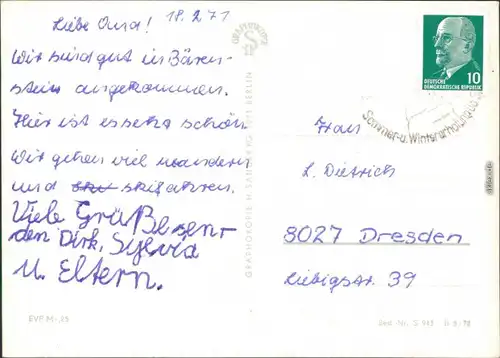 Liebe Oma! 18.2.71
Wir sind gut in Bären-
stein angekommen.
Hier ist es sehr schön
Wir gehen viel wandern
und skifahren.
Viele Grüße
den Dirk, Sylvia
u. Eltern.
GRAPHOKOPIE H. SANDER KG BERLIN
DEUTSCHE
DEMOKRATISCHE REPUBLIK
10
Sommer-u. Winter
Frau
L. Dietrich
8027 Dresden
Liebigstr. 39
EVP M
Best. Nr.